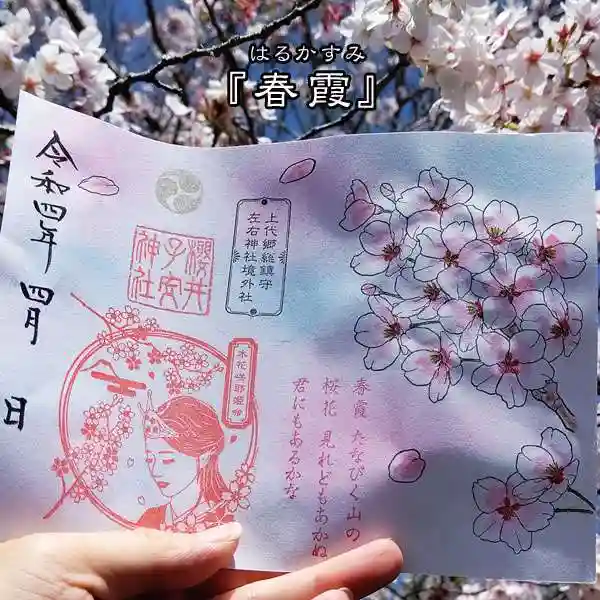 はるかすみ
『春霞』
令和四年 四月
日
上代郷総鎮守
左右神社境外社
櫻井
子安
神社
木花咲耶姫命
春霞 たなびく山の
桜花 見れどもあかぬ
君にもあるかな